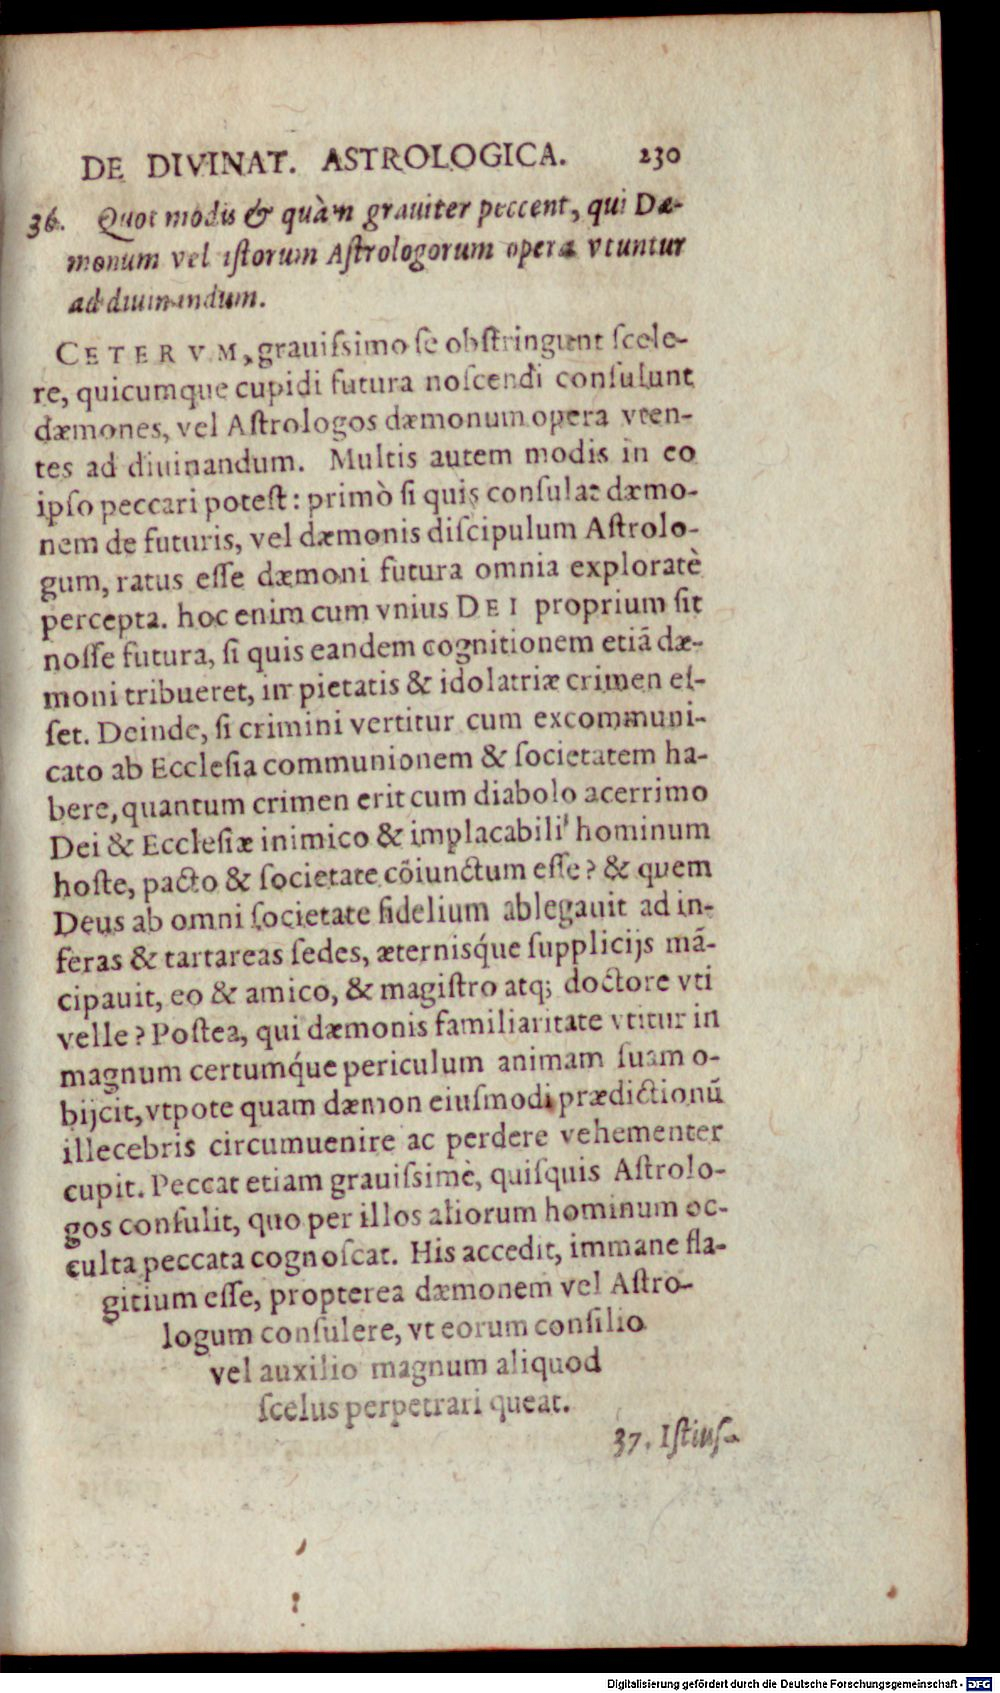 DE DIVINAT. ASTROLOGICA. 230
36. Quot modis & quàm grauiter peccent, qui Dæ-
monum vel istorum Astrologorum opera vtuntur
ad diuinandum.
CETERVM, grauissimo se obstringunt scele-
re, quicumque cupidi futura noscendi consulunt
dæmones, vel Astrologos dæmonum opera vten-
tes ad diuinandum. Multis autem modis in eo
ipso peccari potest: primò si quis consulat dæmo-
nem de futuris, vel dæmonis discipulum Astrolo-
gum, ratus esse dæmoni futura omnia exploratè
percepta. hoc enim cum vnius DEI proprium sit
nosse futura, si quis eandem cognitionem etiã dæ-
moni tribueret, impietatis & idolatriæ crimen es-
set. Deinde, si crimini vertitur cum excommuni-
cato ab Ecclesia communionem & societatem ha-
bere, quantum crimen erit cum diabolo acerrimo
Dei & Ecclesiæ inimico & implacabili hominum
hoste, pacto & societate cõiunctum esse? & quem
Deus ab omni societate fidelium ablegauit ad in-
feras & tartareas sedes, æternisq́ue supplicijs mã-
cipauit, eo & amico, & magistro atq; doctore vti
velle? Postea, qui dæmonis familiaritate vtitur in
magnum certumq́ue periculum animam suam o-
bijcit, vtpote quam dæmon eiusmodi prædictionũ
illecebris circumuenire ac perdere vehementer
cupit. Peccat etiam grauissimè, quisquis Astrolo-
gos consulit, quo per illos aliorum hominum oc-
culta peccata cognoscat. His accedit, immane fla-
gitium esse, propterea dæmonem vel Astro-
logum consulere, vt eorum consilio
vel auxilio magnum aliquod
scelus perpetrari queat.
37. Istius-
Digitalisierung gefördert durch die Deutsche Forschungsgemeinschaft - DFG